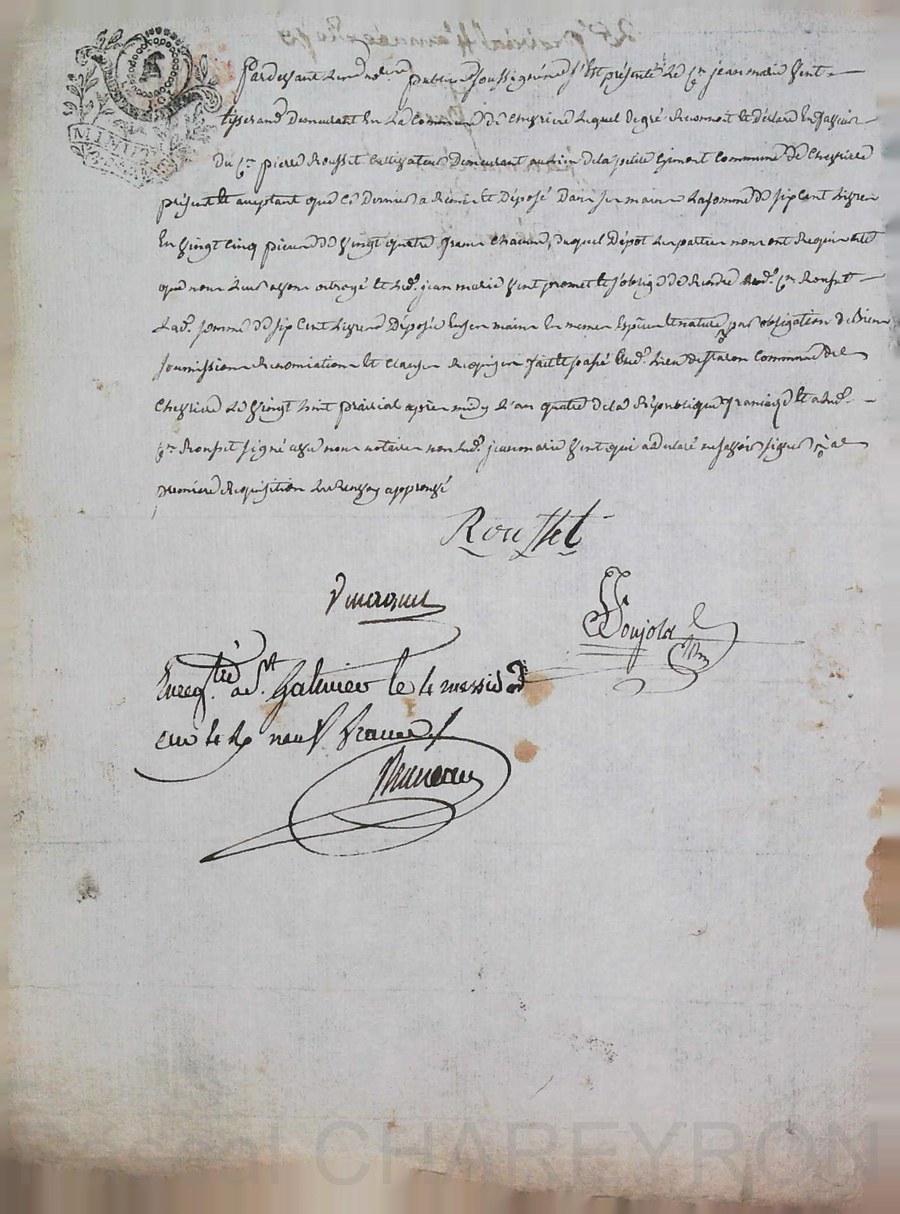 Pardevant le no.re public soussigné s'est présenté le C.en jean marie Vint
tisserand demeurant en la commune de Chevriere lequel de gré reconnoit et déclare en faveur
Du C.en pierre Rousset cultivateur demeurant au lieu de la petite Gimont commune de Chevriere
présent et acceptant que ce dernier a remis et déposé dans ses mains la somme de six cent livres
En vingt cinq pieces de vingt quatre francs chacune, duquel dépôt les parties nous ont requis acte
que nous leur avons octroyé et led. jean marie Vint promet et s'oblige de rendre aud. C.en Rousset
Lad. somme de six cent livres déposée en ses mains en memes especes et nature, par obligation de biens
soumissions renonciations et clauses requises fait et passé aud. lieu de commune de
Chevriere le vingt huit prairial apres midy l'an quatre de la République francaise et a led.
C.en Rousset signé avec nous notaire non led. jean marie Vint qui a déclaré ne savoir signer de ce
premiere requisition approuvé
Rousset
Ponjolas
Enreg.tré a S.t Galmier le 4 messidor
neuf francs